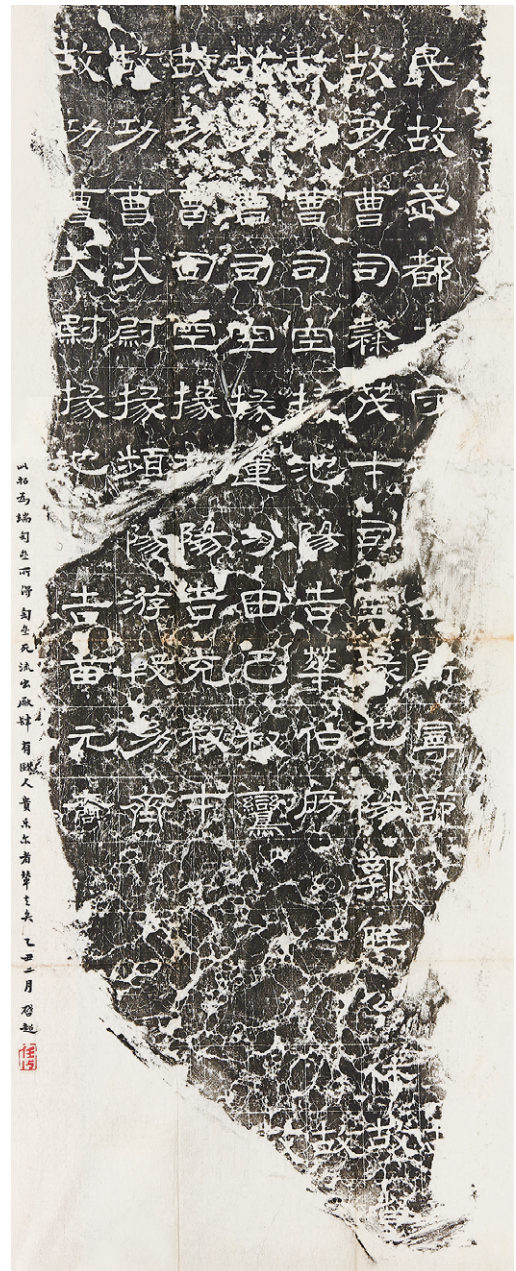 民故武都太守
故功曹司隸茂才司空掾池陽郭旺公休故督
故功曹司空掾池陽吉華伯房故
故功曹司空掾蓮勺田己叔鸞
故功曹司空掾池陽吉充叔才
故功曹大尉掾頻陽游殷幼齊
故功曹大尉掾池吉苗元裔
石為端匋齋所得匋齋死流出廠肆有歐人
乙丑二月 啟超
任公